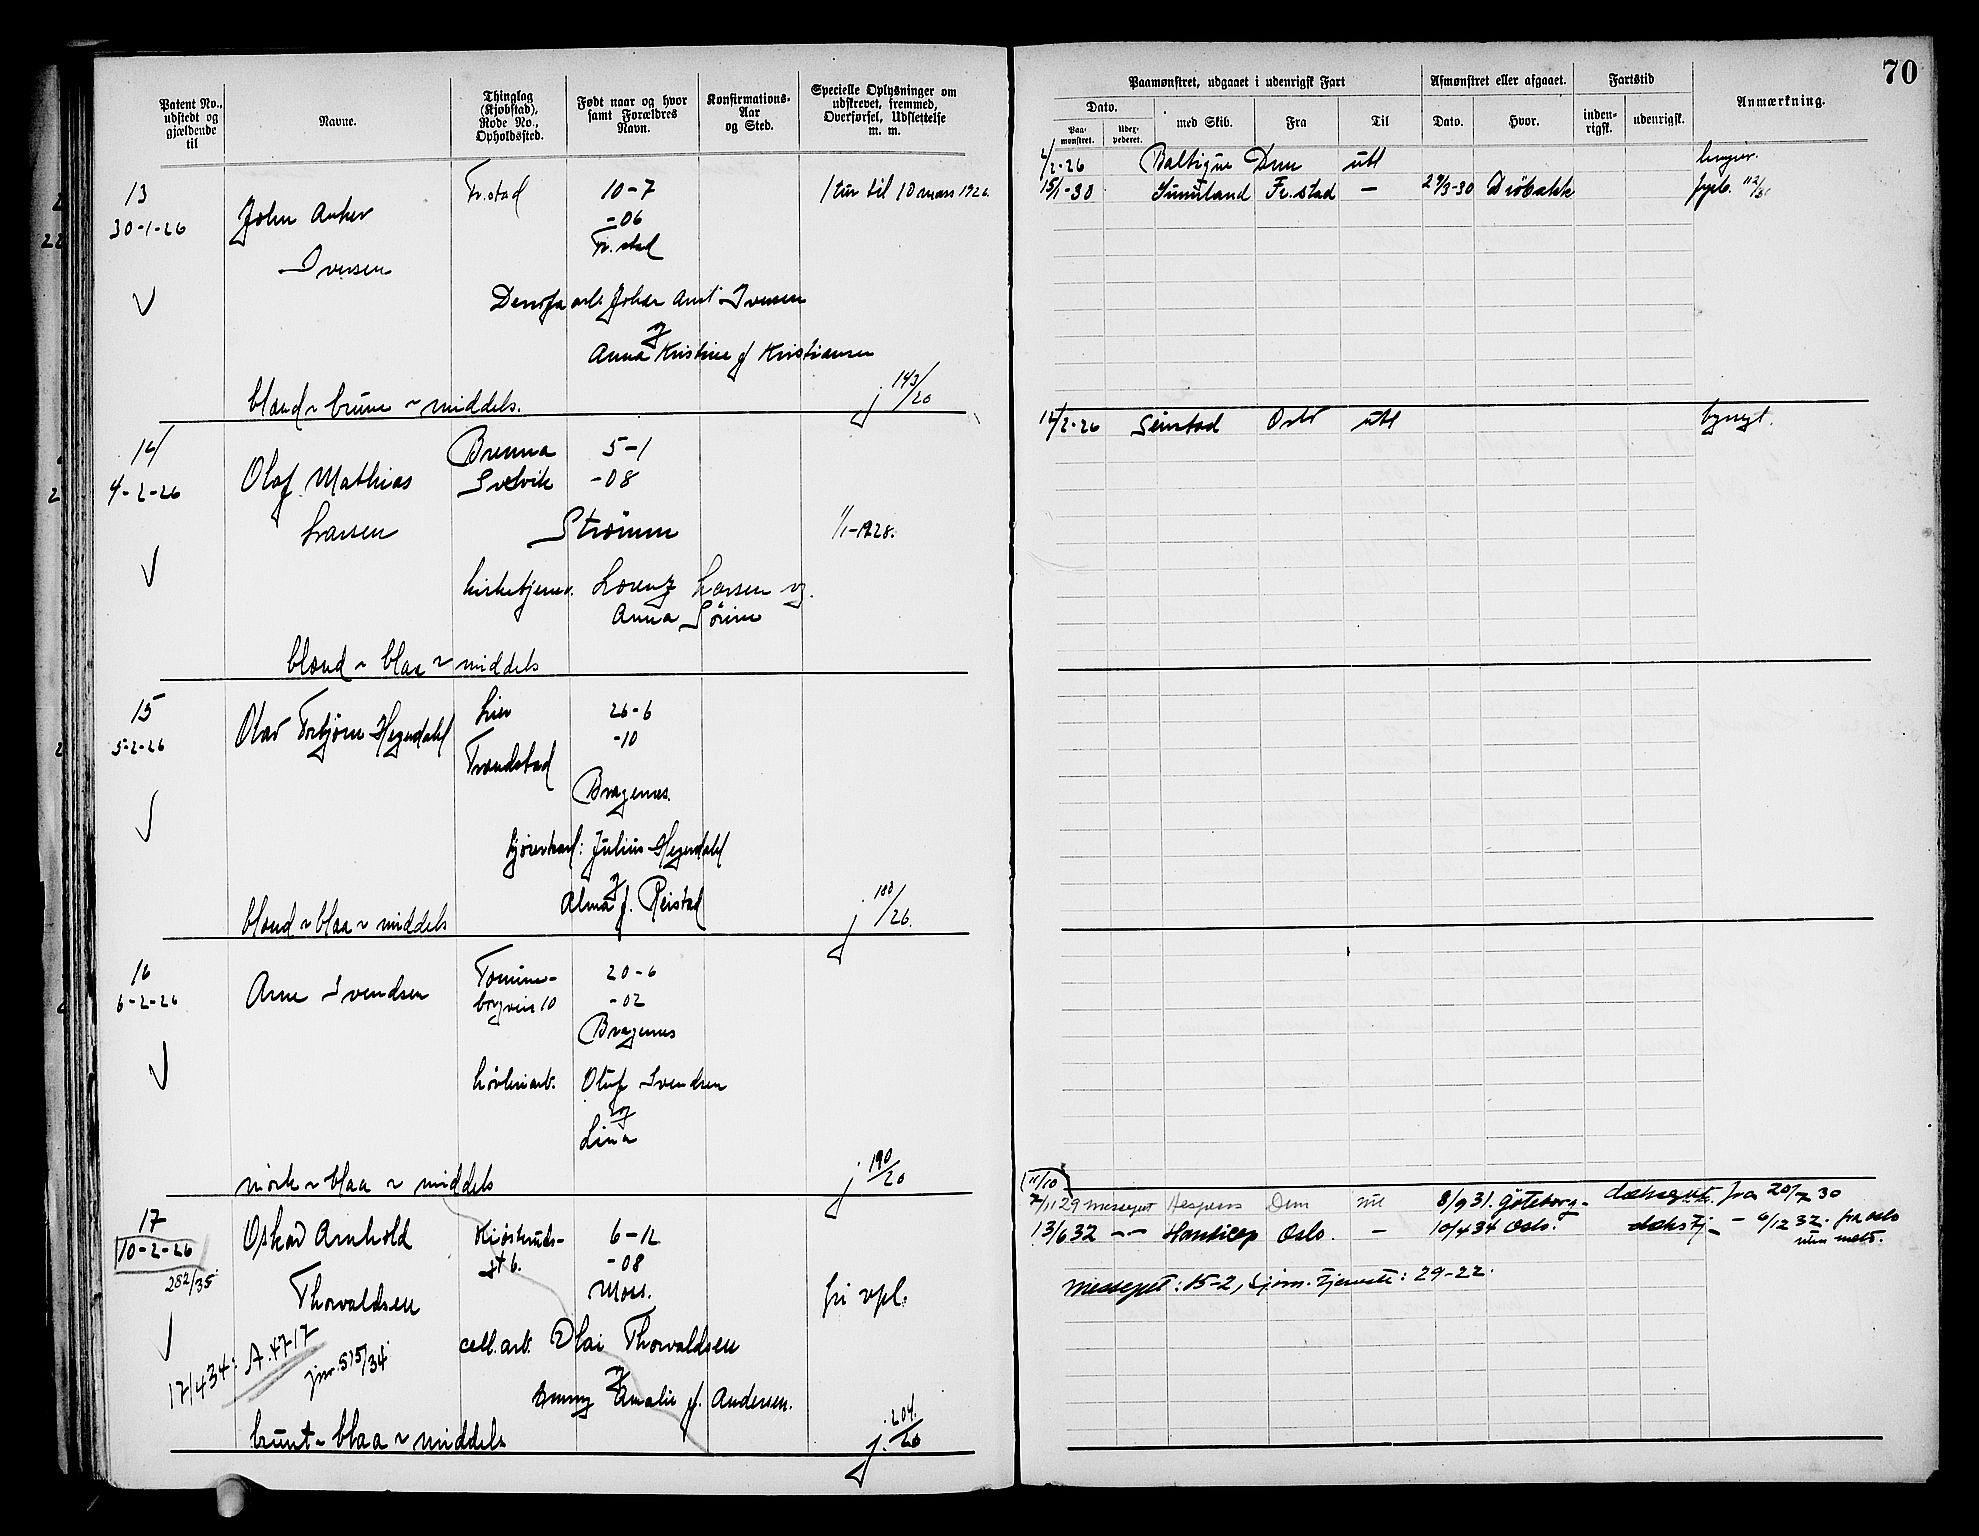 70
Patent No., udstedt og gjældende til
Navne.
Thinglag (Kjøbstad), Rode No., Opholdssted.
Født naar og hvor samt Forældres Navn.
Konfirmations-Aar og Sted.
Specielle Oplysninger om udskrevet, fremmed, Overførsel, Udslettelse m. m.
Paamønstret, udgaaet i udenrigsk Fart
Dato.
Paa-monstret.
med Skib.
Fra
Til
Afmønstret eller afgaaet.
Dato.
Hvor.
Fartstid
inden-rigsk.
udenrigsk.
Anmærkning.
13
30-1-26
John Anker
Iversen
Fr.stad
10-7
-06
Fr. stad
1 tur til 10 mars 1926.
Johan Iversen
Anna Kristine f Kristiansen
blond ~ brune ~ middels.
j 143/20
4/2-26 Baltique Dmn utl
15/1-30 Fr.stad — 29/3-30 Drøbakk
14
4-2-26
Olaf Mathias
Larsen
Brenna
Svelvik
5-1
-08
Strømm
1/1-1928.
kirketjener. Lorenz Larsen og
Anna Sørine
blond ~ blaa ~ middels
12/2-26 Oslo utl
15
5-2-26
Olav Torbjørn Hegendahl
Lier
Tranbstad
26-6
-10
Bragenes.
kjørekarl: Julius Hegendahl
Alma f. Reistad
blond ~ blaa ~ middels
j 188/26.
16
6-2-26
Arne Svendsen
Tomine-
borgvein 10
20-6
-02
Bragenes
høvleriarb. Oluf Svendsen
og
Lina
mörk ~ blaa ~ middels
j 190/20
17
10-2-26
282/35
Oskar Arnhold
Thorvaldsen
Kiøsteruds-
gt 6.
6-12
-08
Moss.
fri vpl.
cell.arb. Olai Thorvaldsen
Amalie f. Andersen.
17/4 34: A.4717
jnr. 515/34
brunt ~ blaa ~ middels
j. 204./20
11/10
7/11 29 messegut Hesperus Dmn 8/9 31. Göteborg- dæksgut. fra 20/7 30
13/6 32 —"— Handicap Oslo. — 10/4 34 Oslo. — 6/12 32. fra Oslo
uten
messegut: 15-2, tjeneste: 29-22.